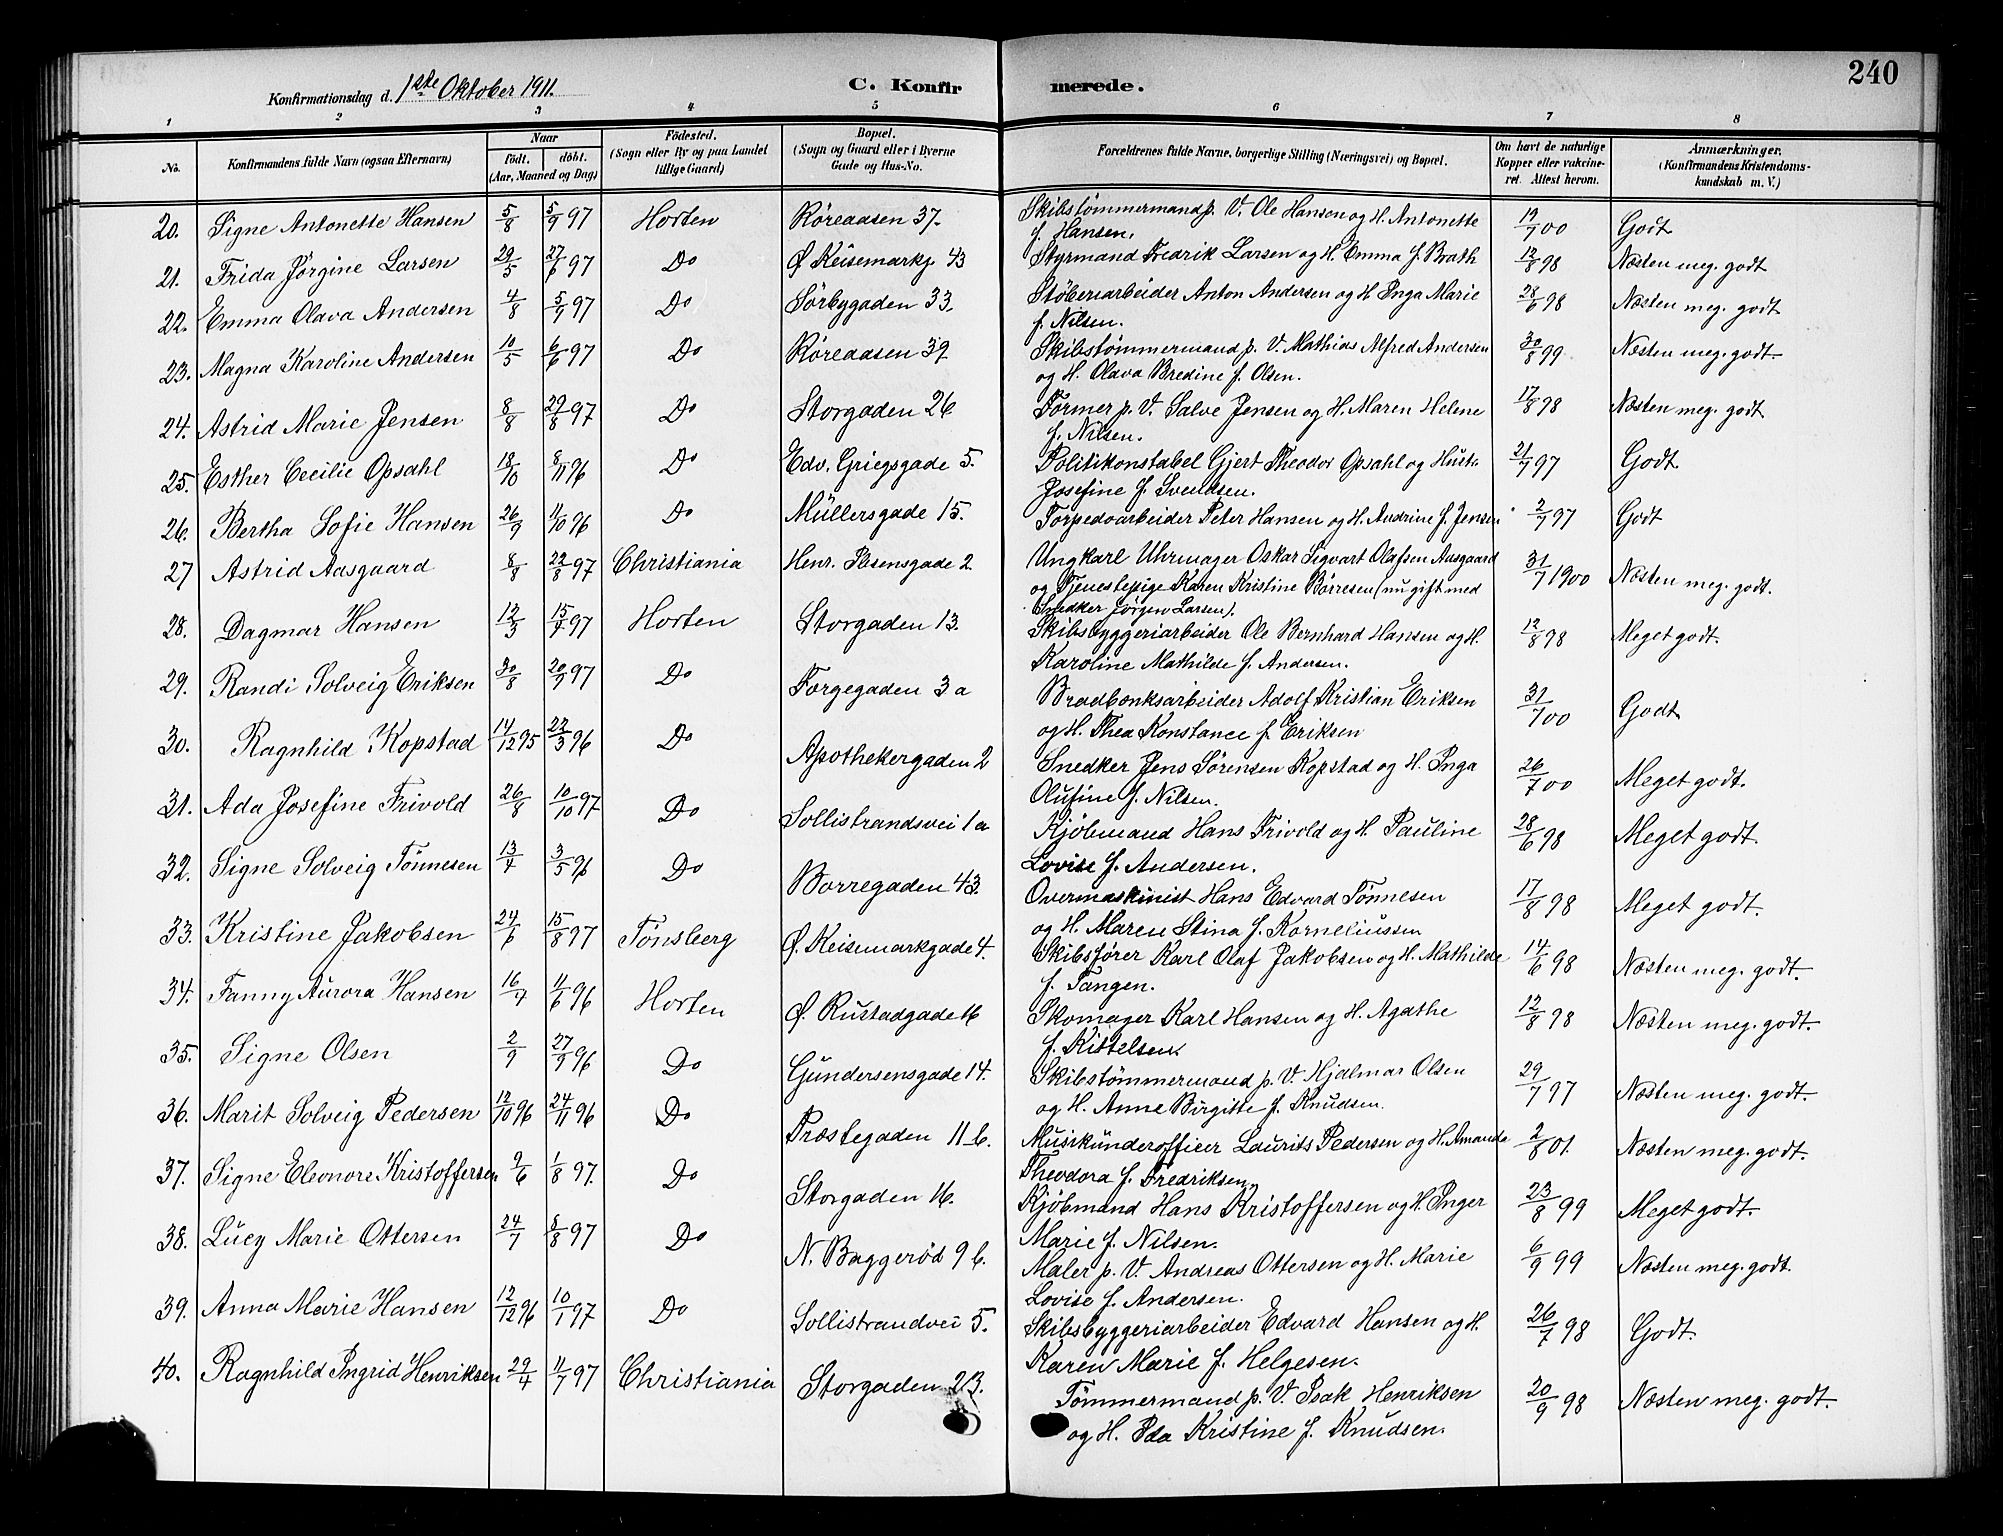 240
Konfirmationsdag d. 1ste Oktober 1911.
C. Konfir merede.
1 2 3 4 5 6 7 8
No. Konfirmandens fulde Navn (ogsaa Efternavn) Naar födt. döbt. (Aar, Maaned og Dag) Födested. (Sogn eller By og paa Landet tillige Gaard) Bopæl. (Sogn og Gaard eller i Byerne Gade og Hus-No. Forældrenes fulde Navne, borgerlige Stilling (Næringsvei) og Bopæl. Om havt de naturlige Kopper eller vakcineret. Attest herom. Anmærkninger. (Konfirmandens Kristendomskundskab m. V.)
20. Signe Antonette Hansen 5/8 5/9 97 Horten Röreaasen 37. Skibstømmermand p. V. Ole Hansen og H. Antonette 19/7 00 Godt
f. Hansen.
21. Frida Jørgine Larsen 29/5 27/6 97 Do Ø. Keisemarkg 43 Styrmand Fredrik Larsen og H. Emma f. Brath 12/8 98 Næsten meg. godt
22. Emma Olava Andersen 4/8 5/9 97 Do Sörbygaden 33. Støberiarbeider Anton Andersen og H. Inga Marie 28/6 98 Næsten meg. godt
f. Nilsen.
23. Magna Karoline Andersen 10/5 6/6 97 Do Röreaasen 39 Skibstømmermand p. V. Mathias Alfred Andersen 30/8 99 Næsten meg. godt
og H. Olava Bredine f. Olsen.
24. Astrid Marie Jensen 8/8 29/8 97 Do Storgaden 26 Former p. V. Salve Jensen og H. Maren Helene 17/8 98 Næsten meg. godt
f. Nilsen.
25. Esther Cecilie Opsahl 18/10 8/11 96 Do Edv. Griegsgade 5. Politikonstabel Gjert Theodor Opsahl og Hustr. 21/7 97 Godt
Josefine f. Svendsen.
26. Bertha Sofie Hansen 26/9 11/10 96 Do Müllersgade 15. Torpedoarbeider Peter Hansen og H. Andrine f. Jensen 2/7 97 Godt
27 Astrid Aasgaard 8/8 22/8 97 Christiania Henr. Ibsensgade 2 Ungkarl Uhrmager Oskar Sigvart Olafsen Aasgaard 31/7 1900 Næsten meg. godt.
og Tjenestepige Karen Kristine Børresen (nu gift med
Snedker Jørgen Larsen).
28. Dagmar Hansen 12/3 15/4 97 Horten Storgaden 13. Skibsbyggeriarbeider Ole Bernhard Hansen og H. 12/8 98 Meget godt.
Karoline Mathilde f. Andersen.
29. Randi Solveig Eriksen 30/8 20/9 97 Do Forgegaden 3a Bradbænksarbeider Adolf Kristian Eriksen 31/7 00 Godt
og H. Thea Konstance f. Eriksen
30. Ragnhild Kopstad 14/12 95 22/3 96 Do Apothekergaden 2 Snedker Jens Sørensen Kopstad og H. Inga 26/7 00 Meget godt.
Olufine f. Nilsen.
31. Ada Josefine Frivold 26/8 10/10 97 Do Sollistrandsvei 1a Kjøbmand Hans Frivold og H. Pauline 28/6 98 Meget godt.
Lovise f. Andersen.
32. Signe Solveig Tönnesen 13/4 3/5 96 Do Borregaden 43. Overmaskinist Hans Edvard Tönnesen 17/8 98 Meget godt.
og H. Maren Stina f. Korneliussen
33. Kristine Jakobsen 24/6 15/8 97 Tönsberg Ø. Keisemarkgade 4. Skibsfører Karl Olaf Jakobsen og H. Mathilde 14/6 98 Næsten meg. godt.
f. Tangen.
34. Fanny Aurora Hansen 16/4 11/6 96 Horten Ø. Rustadgade 16 Skomager Karl Hansen og H. Agathe 12/8 98 Næsten meg. godt.
f. Kittelsen.
35. Signe Olsen 2/9 27/9 96 Do Gundersensgade 14. Skibstømmermand p. V. Hjalmar Olsen 29/7 97 Næsten meg. godt.
og H. Anne Birgitte f. Knudsen.
36. Marit Solveig Pedersen 12/10 96 24/11 96 Do Præstegaden 11 b. Musikunderofficer Laurits Pedersen og H. Amanda 2/8 01. Næsten meg. godt.
Theodora f. Fredriksen.
37. Signe Eleonore Kristoffersen 9/6 1/8 97. Do Storgaden 16. Kjøbmand Hans Kristoffersen og H. Inger 23/8 99 Meget godt.
Marie f. Nilsen.
38. Lucy Marie Ottersen 24/7 8/8 97 Do N. Baggeröd 9 b. Maler p. V. Andreas Ottersen og H. Marie 6/9 99 Næsten meg. godt.
Lovise f. Andersen.
39. Anna Marie Hansen 12/12 96 10/1 97 Do Sollistrandvei 5. Skibsbyggeriarbeider Edvard Hansen og H. 26/7 98 Godt
Karen Marie f. Helgesen.
40. Ragnhild Ingrid Henriksen 29/4 11/7 97 Christiania Storgaden 23. Tömmermand p. V. Isak Henriksen 20/9 98 Næsten meg. godt.
og H. Ida Kristine f. Knudsen.